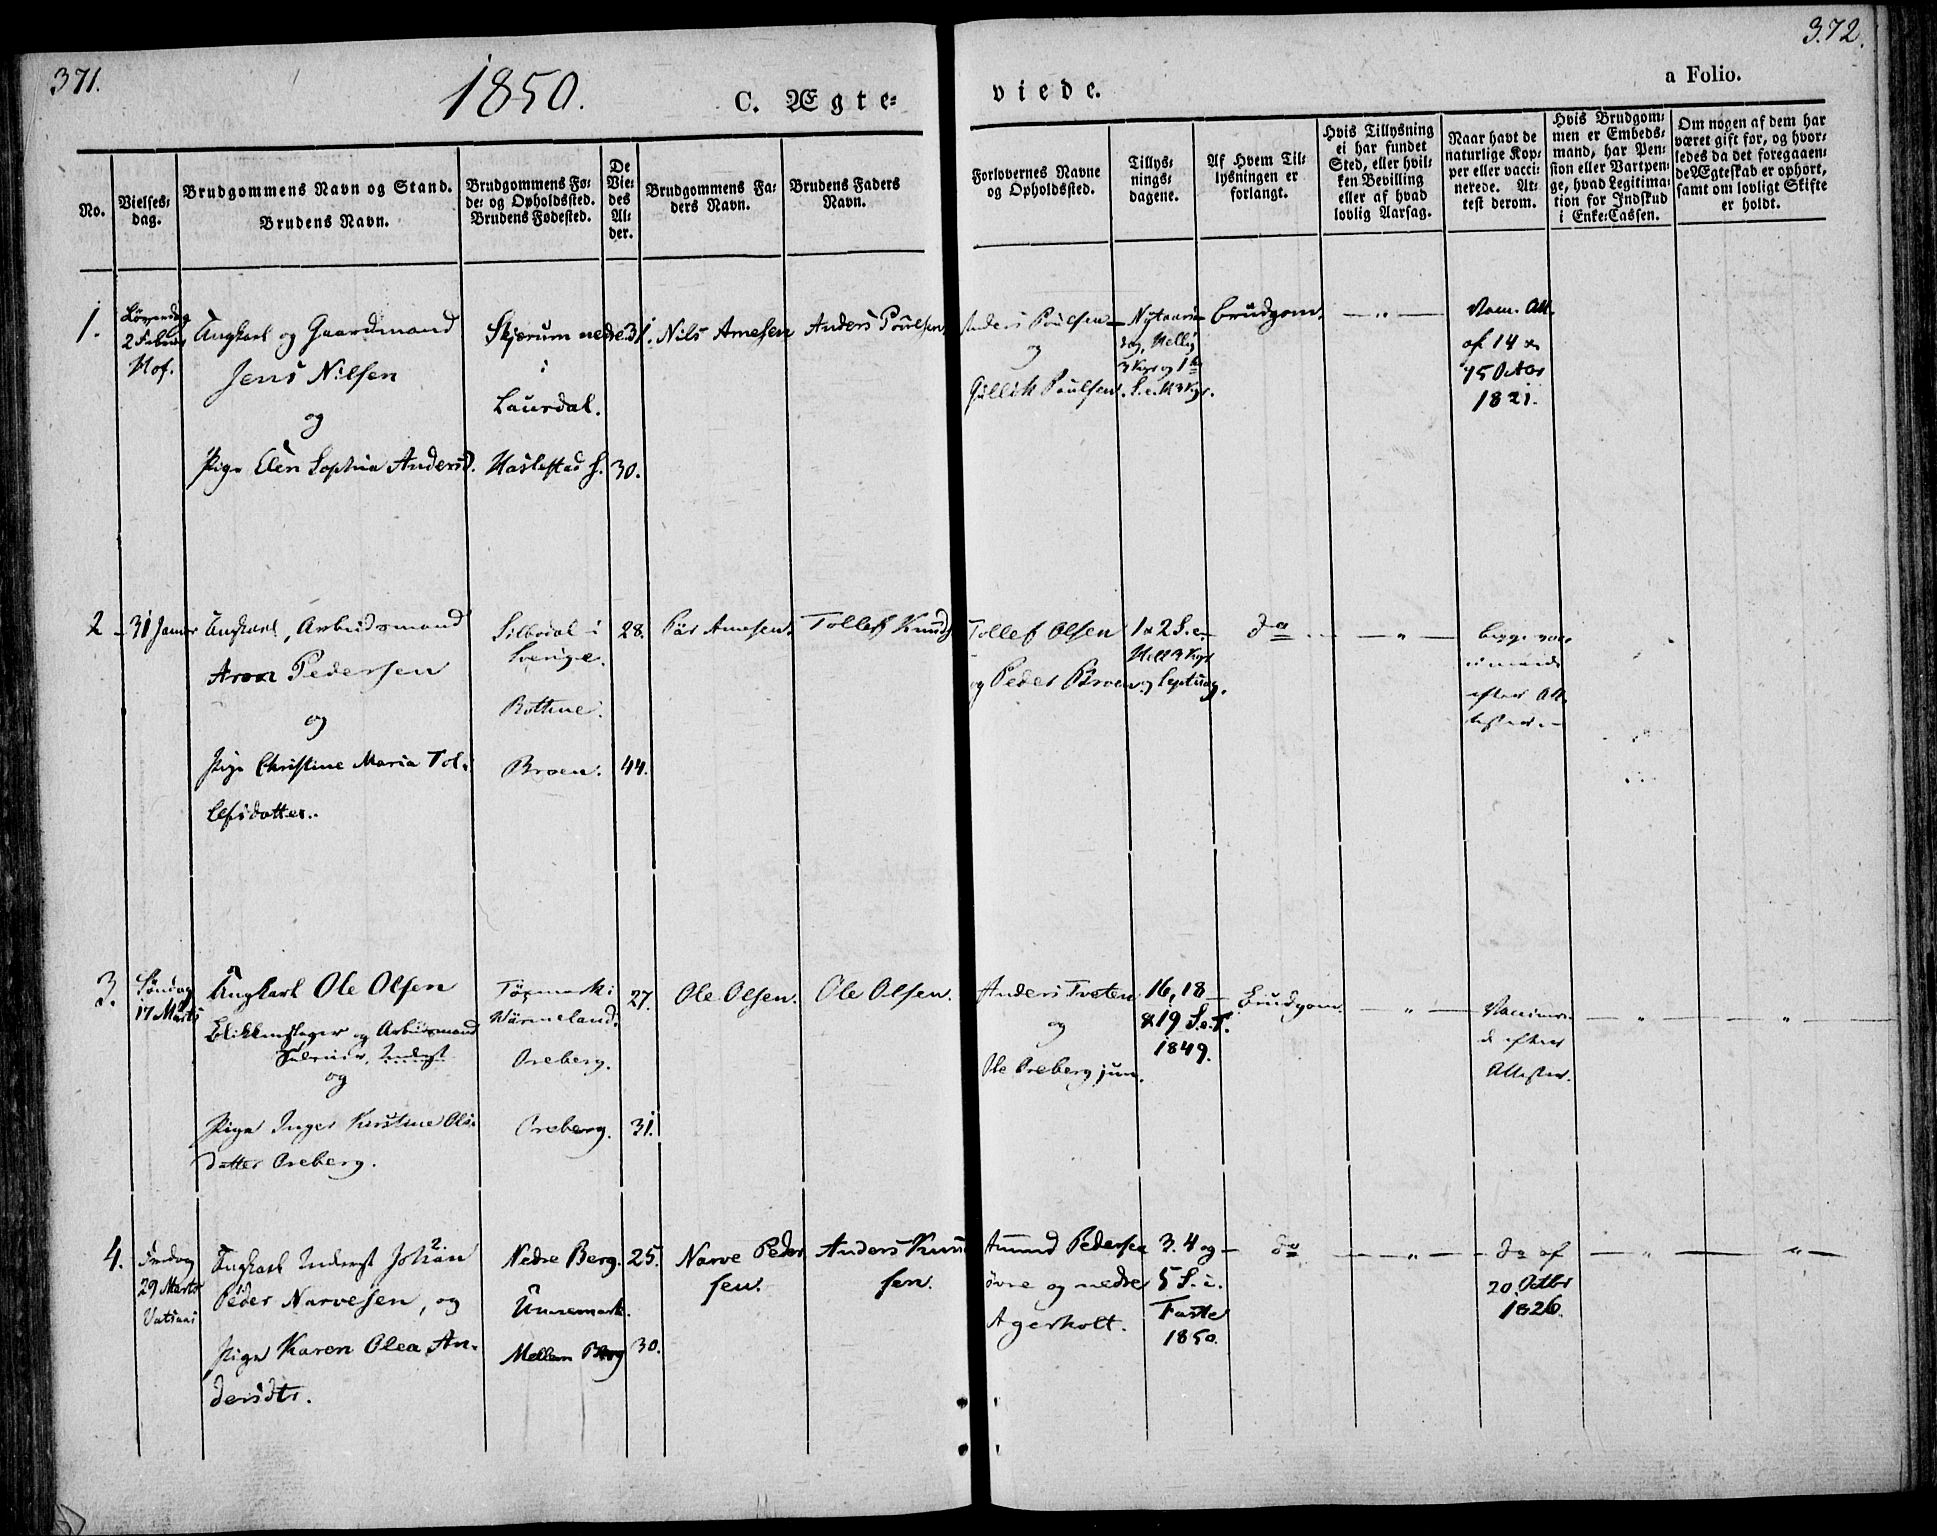 371.
1850.
C. Ægte-
viede.
a Folio.
372.
No.
Vielses-
dag.
Brudgommens Navn og Stand.
Brudens Navn.
Brudgommens Fø-
de- og Opholdssted.
Brudens Fødested.
De
Vie-
des
Al-
der.
Brudgommens Fa-
ders Navn.
Brudens Faders
Navn.
Forlovernes Navne
og Opholdssted.
Tillys-
nings-
dagene.
Af Hvem Til-
lysningen er
forlangt.
Hvis Tillysning
ei har fundet
Sted, eller hvil-
ken Bevilling
eller af hvad
lovlig Aarsag.
Naar havt de
naturlige Kop-
per eller vacci-
nerede. At-
test derom.
Hvis Brudgom-
men er Embeds-
mand, har Pen-
sion eller Vartpen-
ge, hvad Legitima-
tion for Indskud
i Enke-Cassen.
Om nogen af dem har
været gift før, og hvor-
ledes da det foregaaen-
de Ægteskab er ophørt,
samt om lovligt Skifte
er holdt.
1.
Løverdag
2 Febr
Hof.
Ungkarl og Gaardmand
Jens Nilsen
og
Pige Elen Sophia Andersd.
Skjerum nedre
i
Laurdal.
Haslestad s.
31.
30.
Nils Arnesen
Anders Poulsen
Anders Poulsen
og
Gullik Poulsen.
Nytaars
dag, Hellig
3 Kgr og 1
S. e. H 3 Kgr.
Brudgom.
— „ —
Vacc. Att.
af 14
15 Octbr
1821.
2
31 Januar
Ungkarl, Arbeidsmand
Aron Pedersen
og
Pige Christine Maria Tol-
lefsdatter.
Silbodal i
Sverige.
Bottne.
Broen.
28.
44.
Pär Arnesen.
Tollef Knuds
Tollef Olsen
og Peder Broen
1 & 2 S. e.
Hell 3 Kgr
og Septuag.
do
— „ —
begge vac-
efter At-
tester.
3.
Søndag
17 Marts
Ungkarl Ole Olsen
Blikkenslager og Arbeidsmand
og
Pige Inger Kirstine Ols-
datter Oreberg.
Töcmark i
Wärmeland.
Oreberg.
Oreberg.
27.
31.
Ole Olsen.
Ole Olsen.
Anders Tveten
og
Ole Oreberg jun.
16, 18
& 19 S. e. T.
1849.
Brudgom.
— „ —
Vaccinere-
de efter
Attester.
— „ —
— „ —
4.
Fredag
29 Marts
Ungkarl Inderst Johan
Peder Narvesen, og
Pige Karen Olea An-
dersdtr.
Nedre Berg.
Unnemark.
Mellem Berg
25.
30.
Narve Peder
sen.
Anders Knud
sen.
Amund Pedersen
øvre og nedre
Agerholt.
3. 4 og
5 S. i.
Faste
1850.
do
— „ —
do af
20 Octbr
1826.
— „ —
— „ —